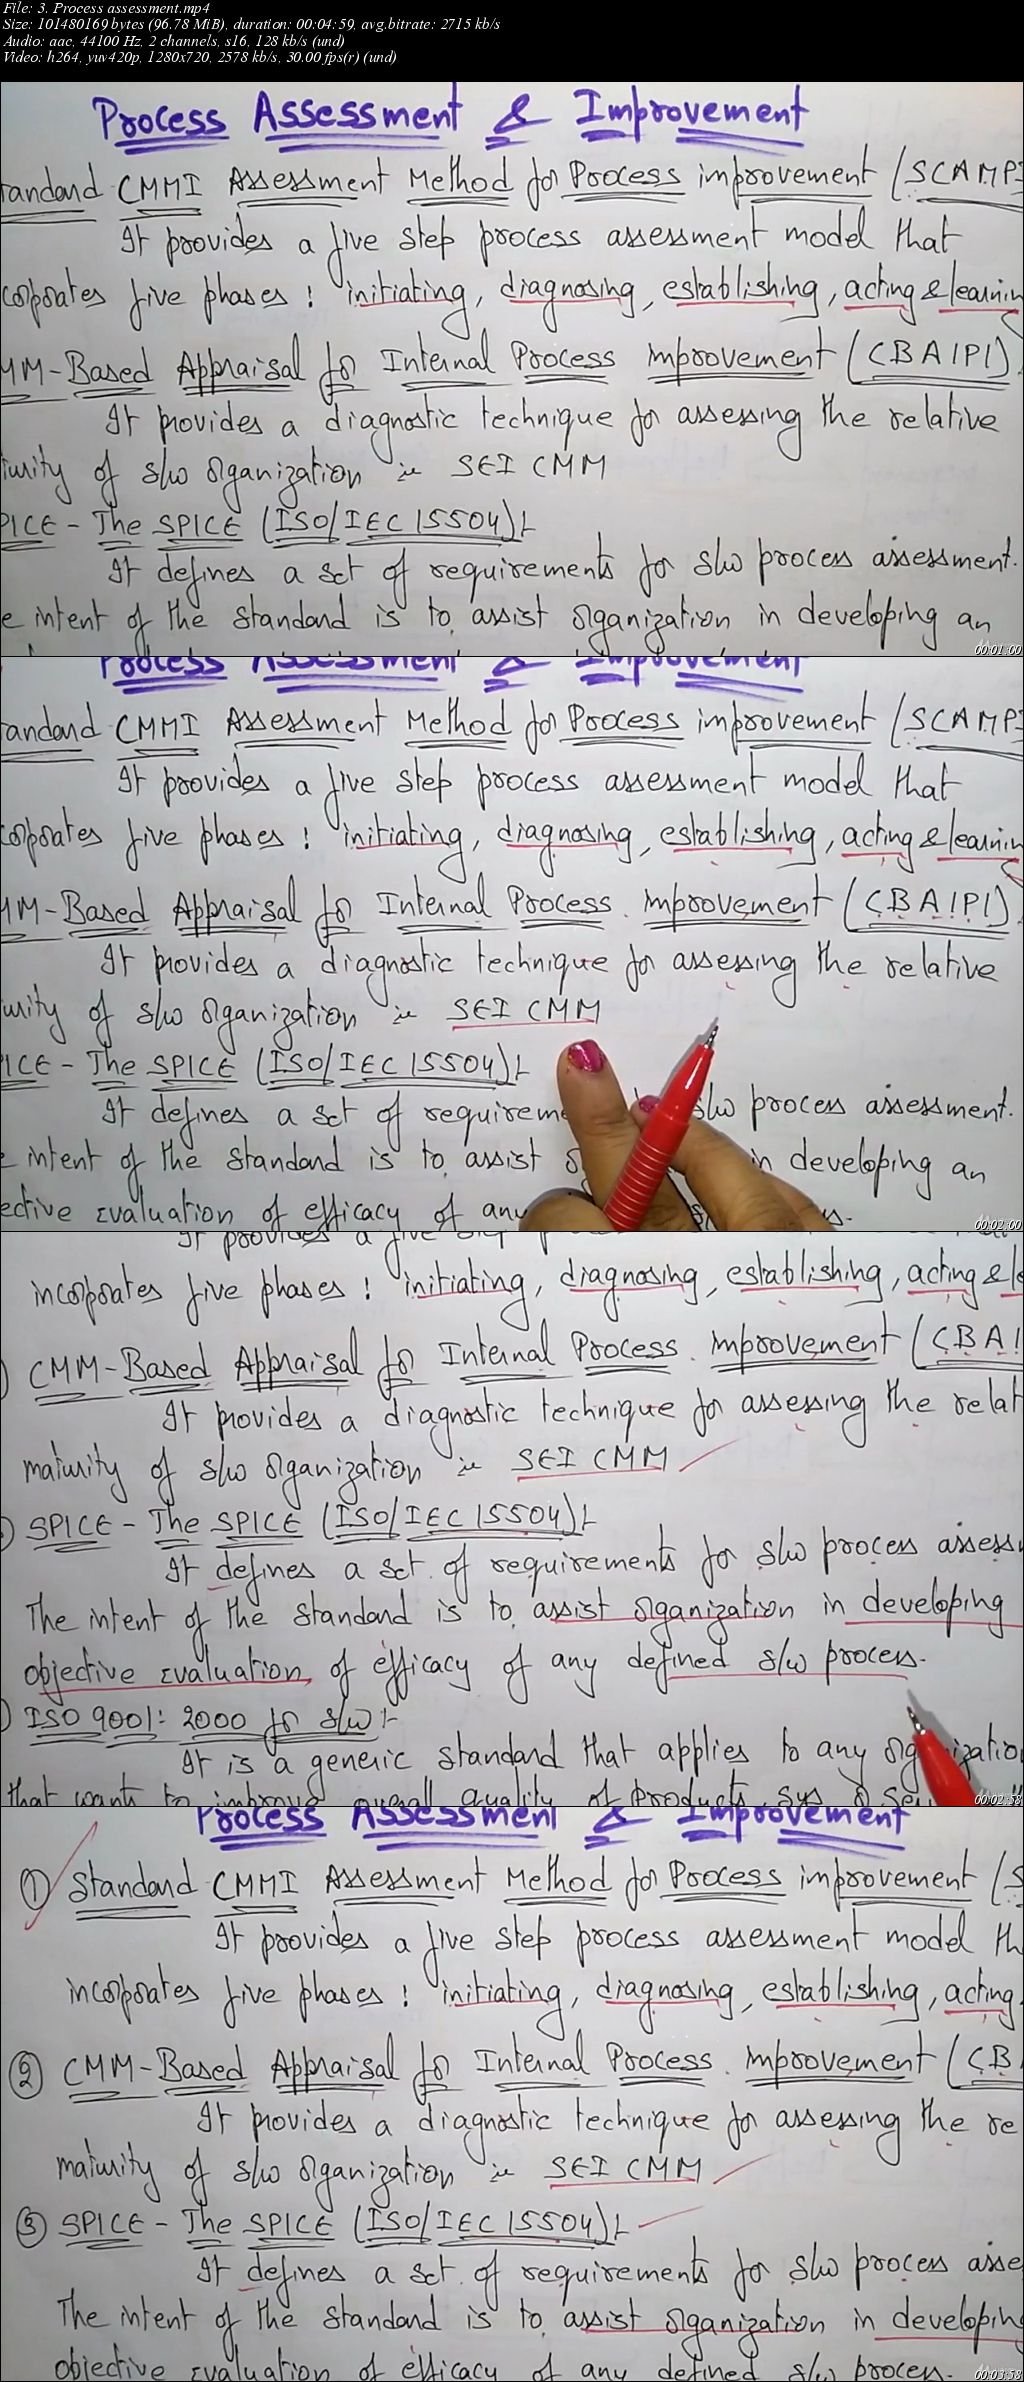 File: 3. Process assessment.mp4
Size: 101480169 bytes (96.78 MiB), duration: 00:04:59, avg.bitrate: 2715 kb/s
Audio: aac, 44100 Hz, 2 channels, s16, 128 kb/s (und)
Video: h264, yuv420p, 1280x720, 2578 kb/s, 30.00 fps(r) (und)
Process Assessment & Improvement
andard CMMI Assessment Method for Process improvement (SCAMPI
It provides a five step process assessment model that
corporates five phases : initiating, diagnosing, establishing, acting & learnin
MM-Based Appraisal for Internal Process Improvement (CBAIPI)
It provides a diagnostic technique for assessing the relative
urity of s/w organization in SEI CMM
PICE - The SPICE (ISO/IEC 15504) :-
It defines a set of requirements for s/w process assessment.
e intent of the standard is to assist organization in developing an
00:01:00
Process Assessment & Improvement
andard CMMI Assessment Method for Process improvement (SCAMPI
It provides a five step process assessment model that
corporates five phases : initiating, diagnosing, establishing, acting & learnin
MM-Based Appraisal for Internal Process Improvement (CBAIPI)
It provides a diagnostic technique for assessing the relative
urity of s/w organization in SEI CMM
ICE - The SPICE (ISO/IEC 15504) :-
It defines a set of requirem s/w process assessment.
intent of the standard is to assist o in developing an
ective evaluation of efficacy of any
00:02:00
It provides a five step
incorporates five phases : initiating, diagnosing, establishing, acting & le
CMM-Based Appraisal for Internal Process Improvement (CBAI
It provides a diagnostic technique for assessing the relat
maturity of s/w organization in SEI CMM
SPICE - The SPICE (ISO/IEC 15504) :-
It defines a set of requirements for s/w process assess
The intent of the standard is to assist organization in developing
objective evaluation, of efficacy of any defined s/w process.
ISO 9001: 2000 for s/w :-
It is a generic standard that applies to any organizatio
that wants to improve overall quality of products, sys or
00:02:58
Process Assessment & Improvement
① Standard CMMI Assessment Method for Process improvement (S
It provides a five step process assessment model th
incorporates five phases : initiating, diagnosing, establishing, acting
② CMM-Based Appraisal for Internal Process Improvement (CB
It provides a diagnostic technique for assessing the re
maturity of s/w organization in SEI CMM
③ SPICE - The SPICE (ISO/IEC 15504) :-
It defines a set of requirements for s/w process asse
The intent of the standard is to assist organization in developing
objective evaluation of efficacy of any defined s/w process.
00:03:58